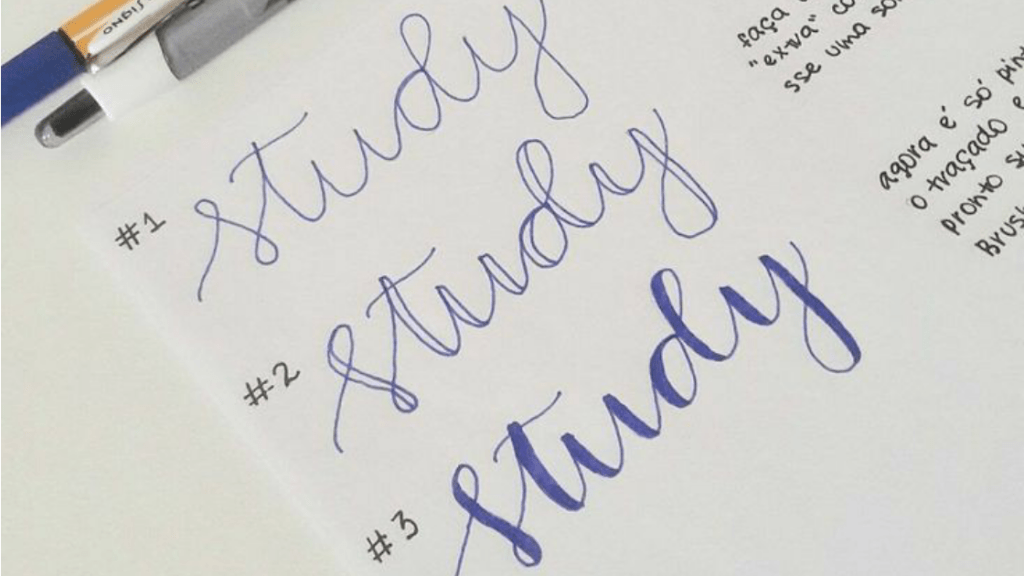 #1 study
#2 study
#3 study
faça
"extra"
sse uma
agora é só
o traçado e
pronto